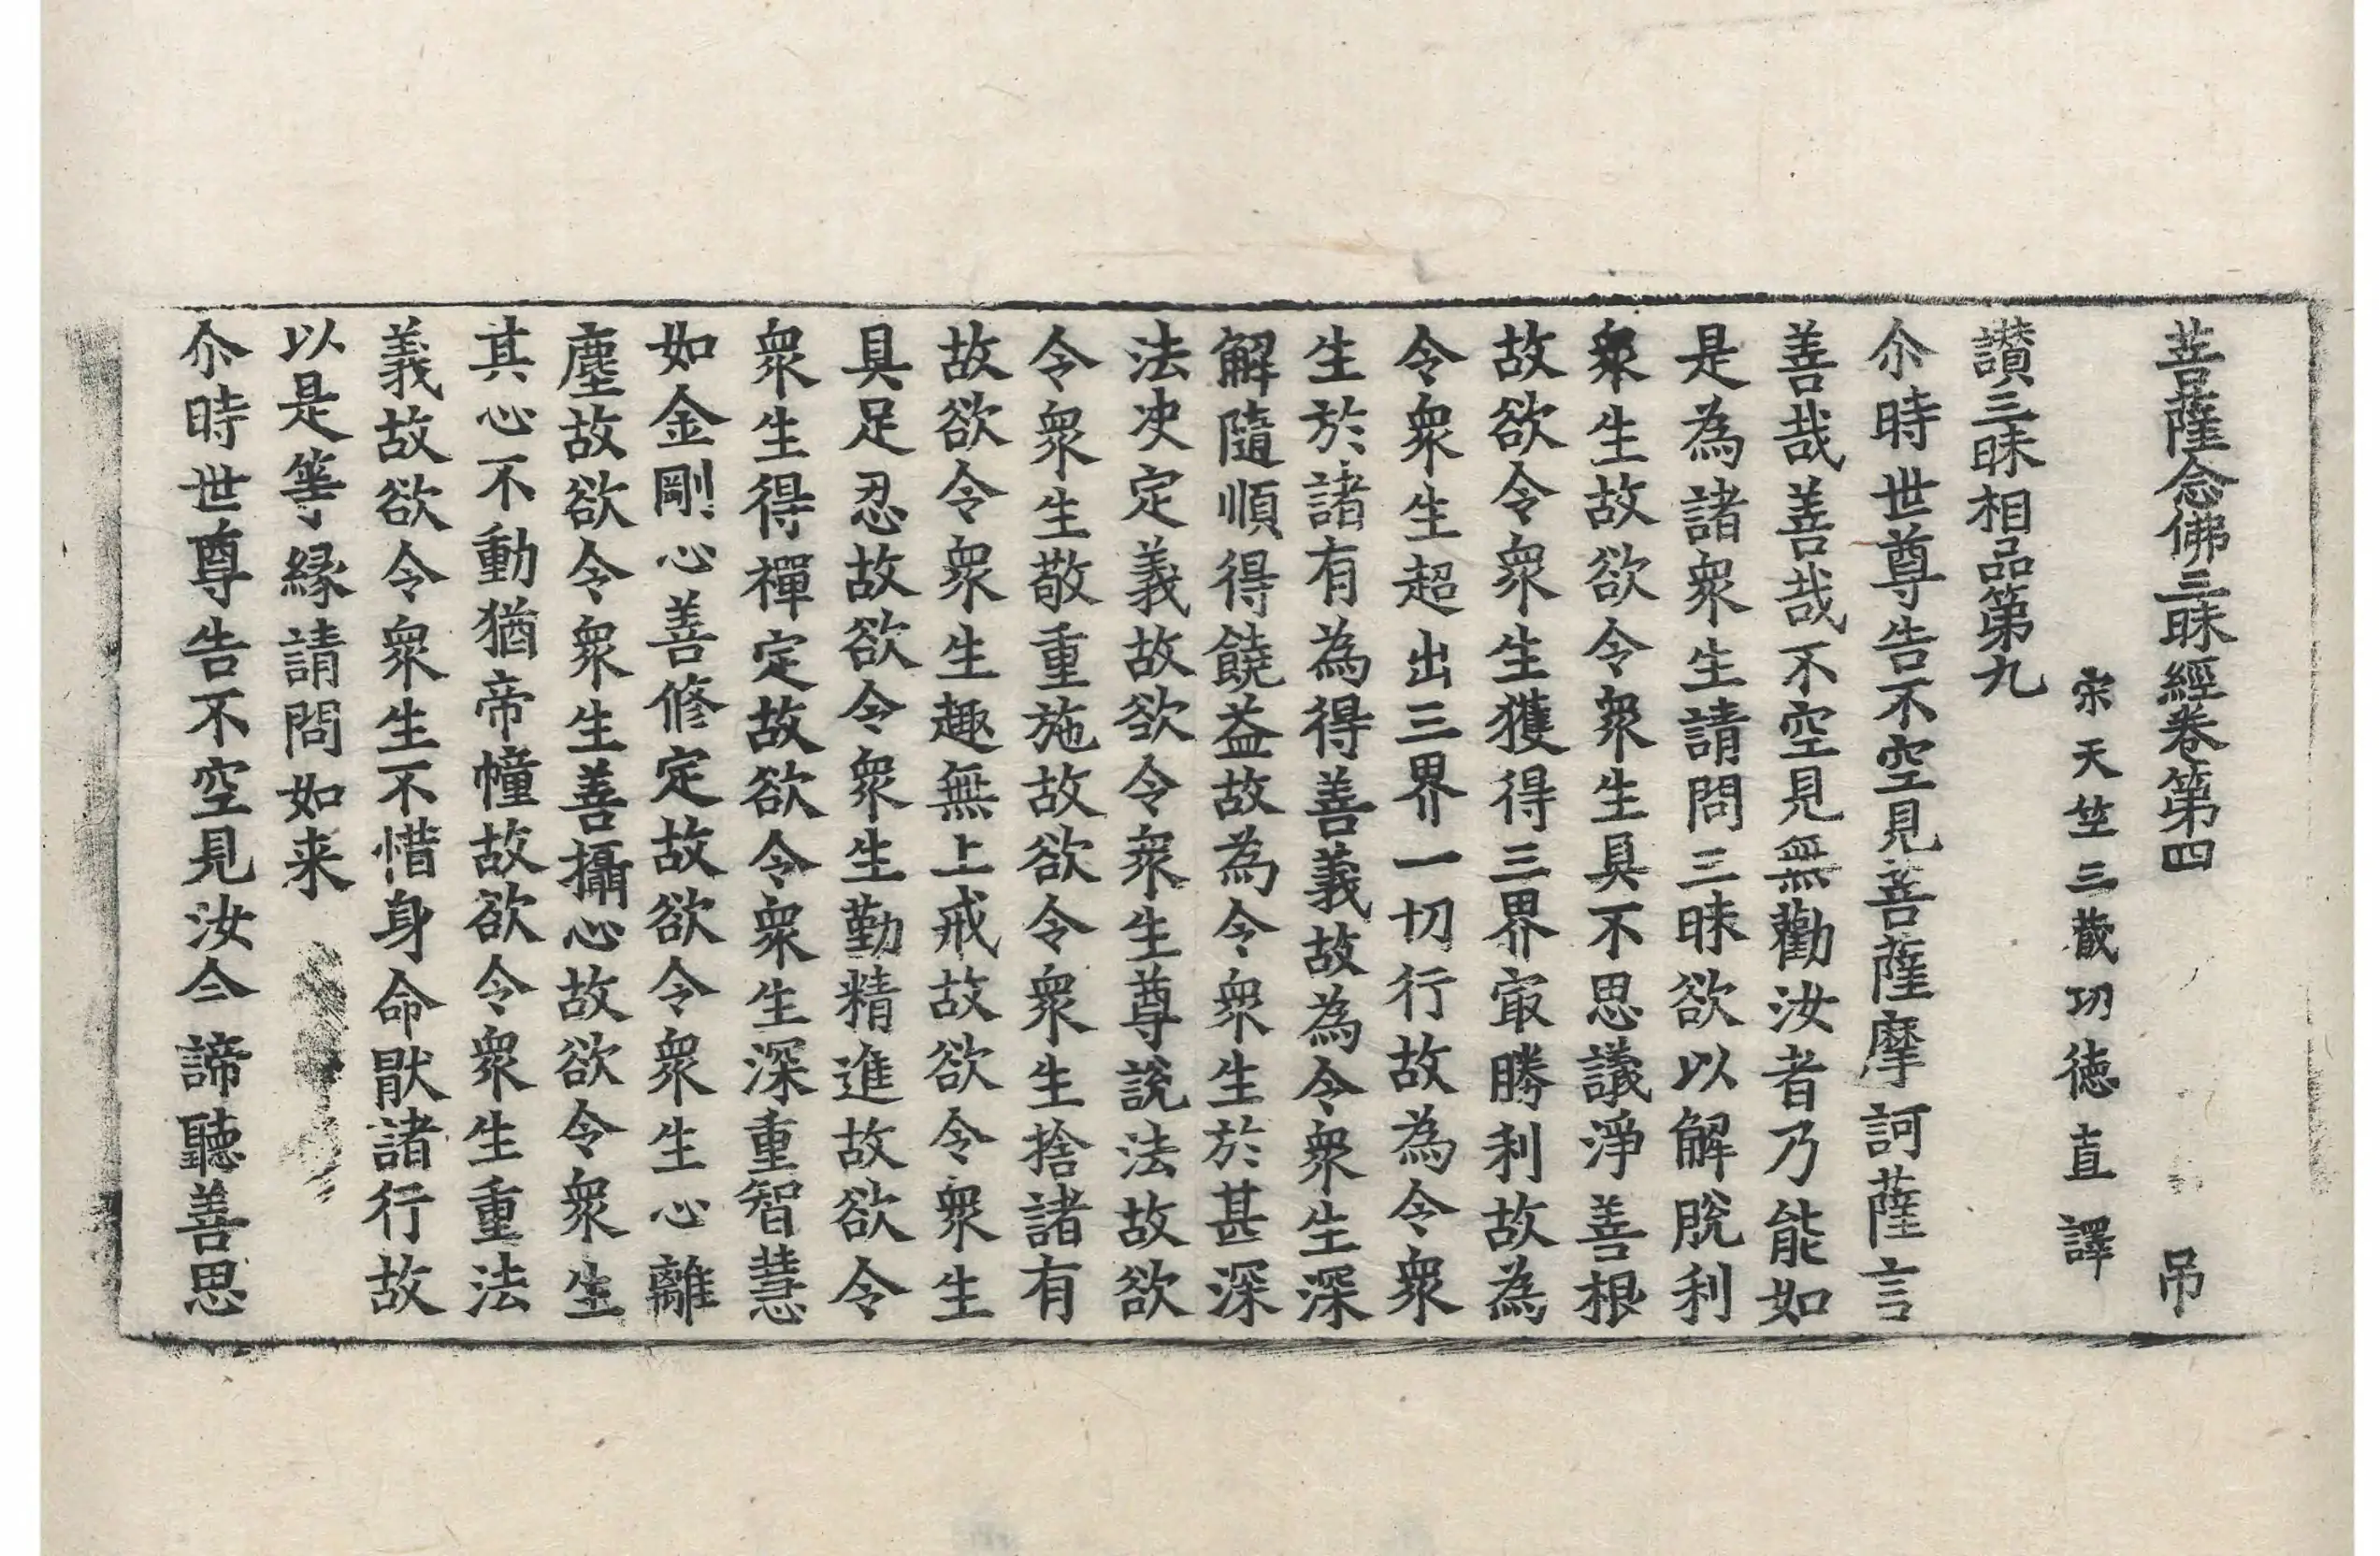 菩薩念佛三昧經卷第四 弔
宋天竺三藏功德直譯
讃三昧相品第九
尒時世尊告不空見菩薩摩訶薩言
善哉善哉不空見無勸汝者乃能如
是為諸衆生請問三昧欲以解脫利
衆生故欲令衆生具不思議淨善根
故欲令衆生獲得三界㝡勝利故為
令衆生超出三界一切行故為令衆
生於諸有為得善義故為令衆生深
解隨順得饒益故為令衆生於甚深
法決定義故欲令衆生尊說法故欲
令衆生敬重施故欲令衆生捨諸有
故欲令衆生趣無上戒故欲令衆生
具足忍故欲令衆生勤精進故欲令
衆生得禪定故欲令衆生深重智慧
如金剛心善修定故欲令衆生心離
塵故欲令衆生善攝心故欲令衆生
其心不動猶帝幢故欲令衆生重法
義故欲令衆生不惜身命猒諸行故
以是等緣請問如来
尒時世尊告不空見汝今諦聽善思